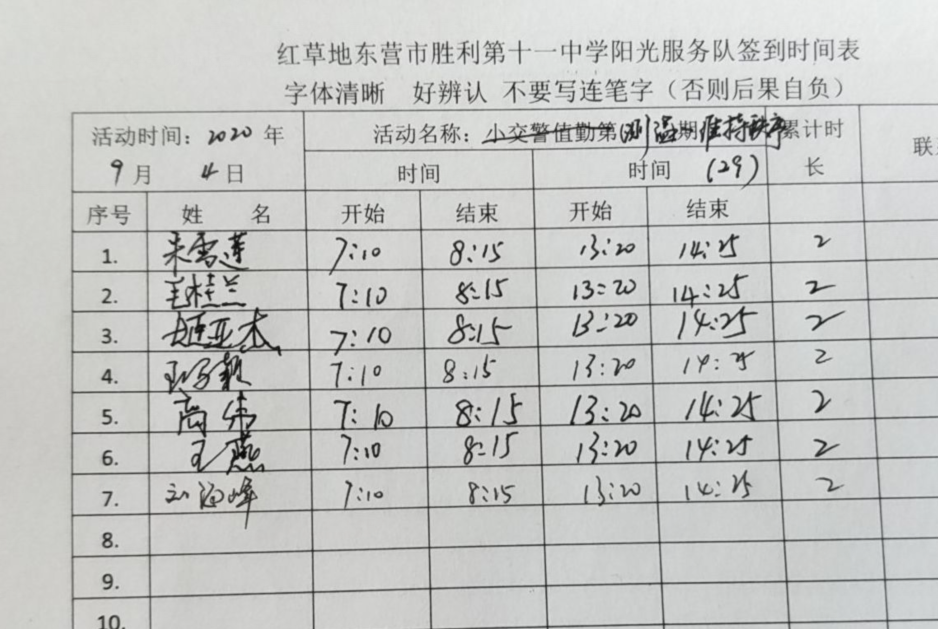 红草地东营市胜利第十一中学阳光服务队签到时间表
字体清晰 好辨认 不要写连笔字（否则后果自负）
活动时间：2020 年 活动名称：小交警值勤第 测温 期 维持秩序 累计时
9 月 4 日 时间 时间 (29) 长 联
序号 姓 名 开始 结束 开始 结束
1. 朱雪莲 7:10 8:15 13:20 14:25 2
2. 毛桂兰 7:10 8:15 13:20 14:25 2
3. 亚杰 7:10 8:15 13:20 14:25 2
4. 7:10 8:15 13:20 14:25 2
5. 高伟 7:10 8:15 13:20 14:25 2
6. 王燕 7:10 8:15 13:20 14:25 2
7. 刘海峰 7:10 8:15 13:20 14:25 2
8.
9.
10.